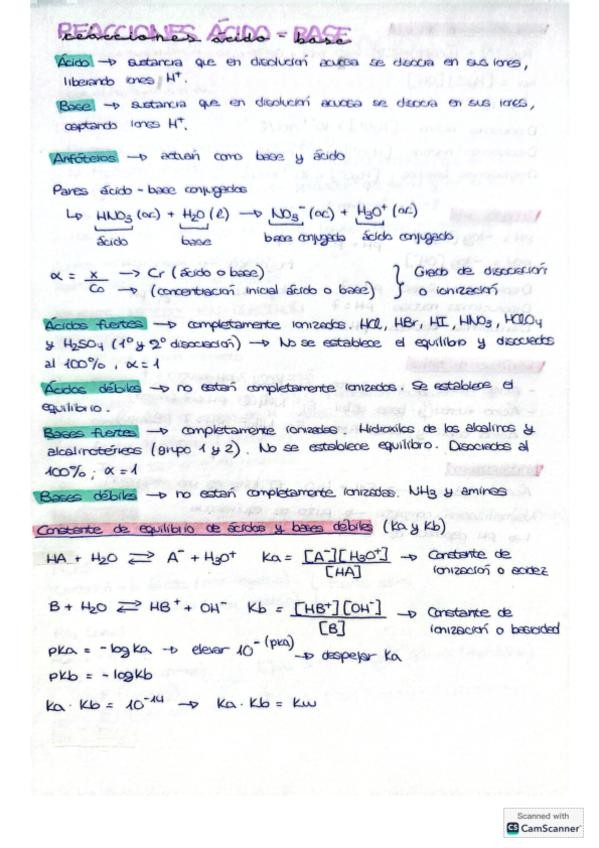 REACCIONES ÁCIDO - BASE
reacciones ácido - base
Ácido → sustancia que en disolución acuosa se disocia en sus iones,
liberando iones H⁺.
Base → sustancia que en disolución acuosa se disocia en sus iones,
captando iones H⁺.
Anfóteros → actúan como base y ácido
Pares ácido - base conjugados
↳ HNO₃ (ac) + H₂O (l) → NO₃⁻ (ac) + H₃O⁺ (ac)
ácido base base conjugada ácido conjugado
α = x / Co → Cr (ácido o base) } Grado de disociación
→ (concentración inicial ácido o base) o ionización
Ácidos fuertes → completamente ionizados. HCl, HBr, HI, HNO₃, HClO₄
y H₂SO₄ (1º y 2º disociación) → No se establece el equilibrio y disociados
al 100%, α = 1
Ácidos débiles → no están completamente ionizados. Se establece el
equilibrio.
Bases fuertes → completamente ionizados. Hidróxilos de los alcalinos y
alcalinotérreos (grupo 1 y 2). No se establece equilibrio. Disociados al
100%; α = 1
Bases débiles → no están completamente ionizadas. NH₃ y aminas
Constante de equilibrio de ácidos y bases débiles (Ka y Kb)
HA + H₂O ⇄ A⁻ + H₃O⁺ Ka = [A⁻][H₃O⁺] / [HA] → Constante de
ionización o acidez
B + H₂O ⇄ HB⁺ + OH⁻ Kb = [HB⁺][OH⁻] / [B] → Constante de
ionización o basicidad
pKa = - log Ka → elevar 10^-(pka) → despejar Ka
pKb = - log Kb
Ka · Kb = 10⁻¹⁴ → Ka · Kb = Kw
Scanned with
CS CamScanner